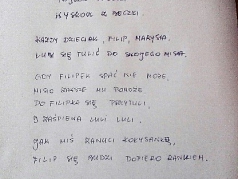 KAŻDY DZIECIAK, FILIP, MARYSIA,
LUBI SIĘ TULIĆ DO SWOJEGO MISIA.
GDY FILIPEK SPAĆ NIE MOŻE,
MIŚ ZAWSZE MU POMOŻE
DO FILIPKA SIĘ PRZYTULI,
I ZAŚPIEWA LULI LULI.
JAK MIŚ ZANUCI KOŁYSANKĘ,
FILIP SIĘ BUDZI DOPIERO RANKIEM.